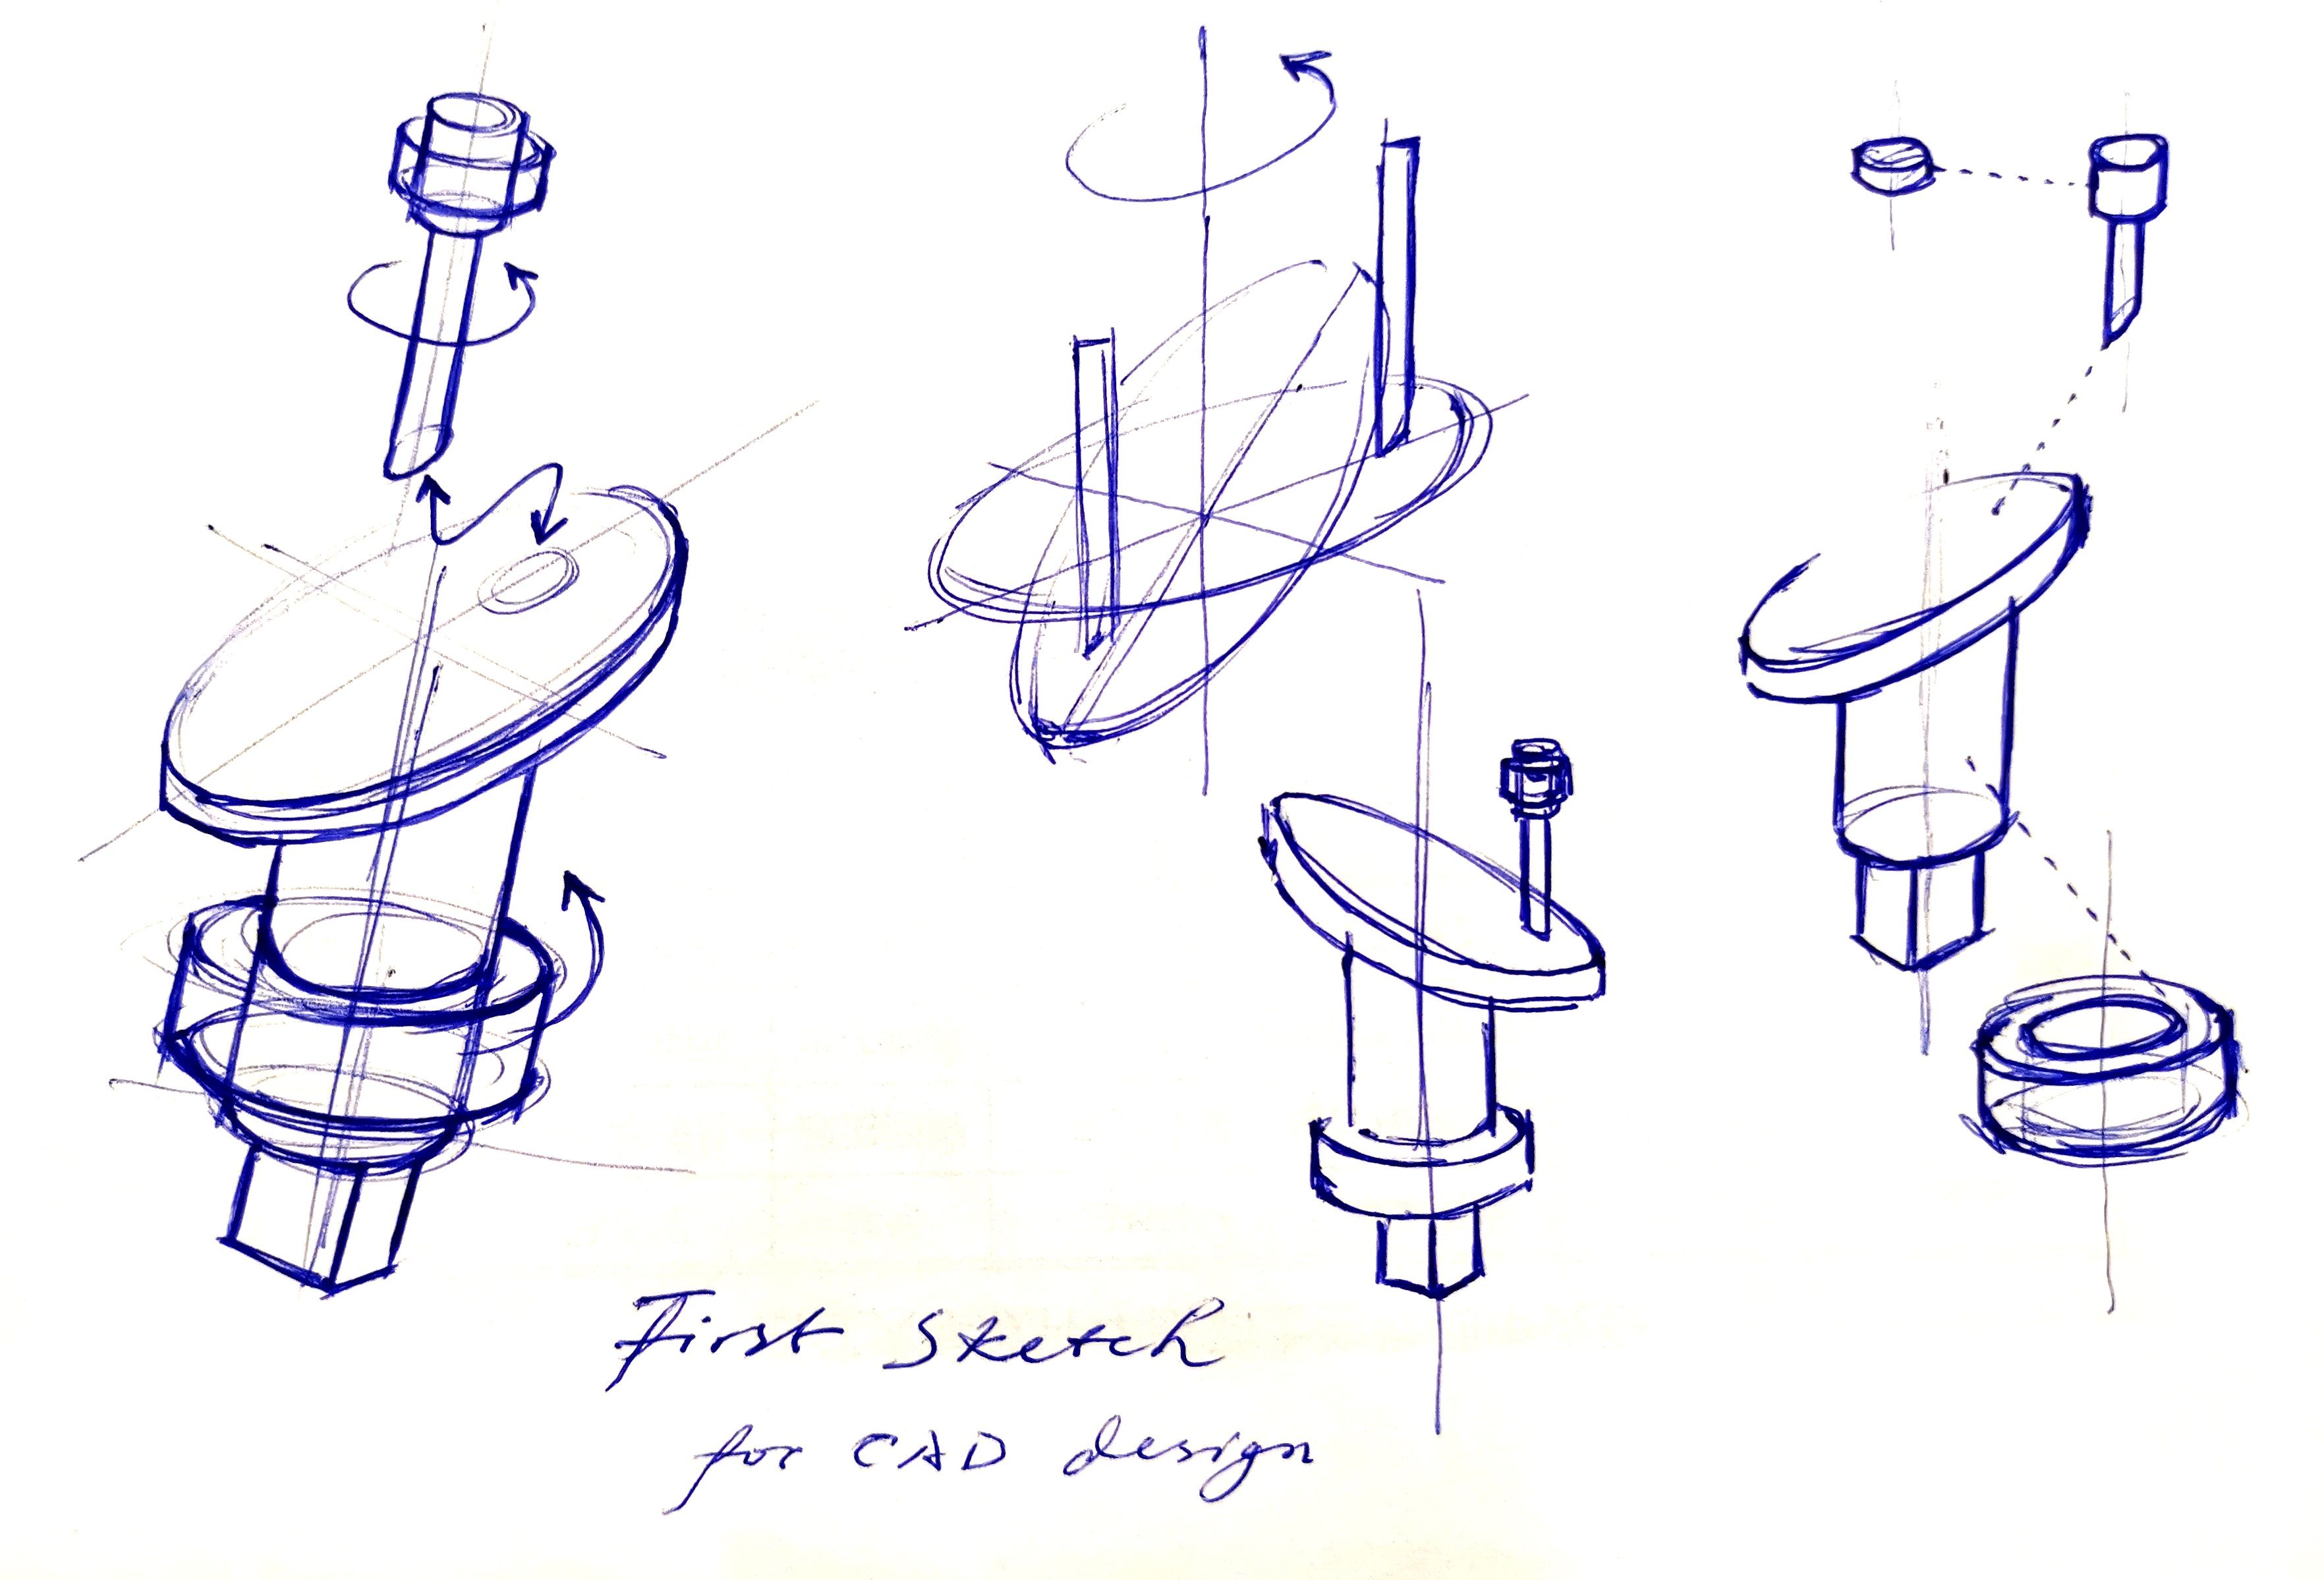 First Sketch
for CAD design